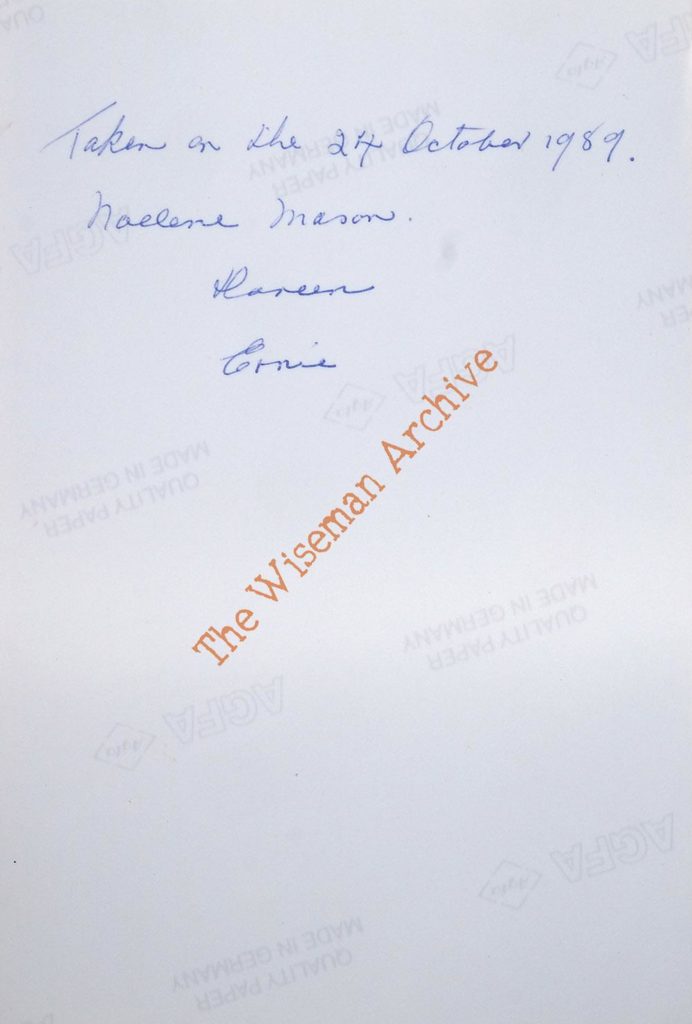 Taken on the 24 October 1989.
Noelene Mason.
Ernie
The Wiseman Archive
AGFA
Agfa
MADE IN GERMANY
QUALITY PAPER
AGFA
MADE IN GERMANY
QUALITY PAPER
Agfa AGFA
MADE IN GERMANY
QUALITY PAPER
MADE IN GERMANY
QUALITY PAPER
Agfa AGFA
Agfa AGFA
MADE IN GERMANY
QUALITY PAPER